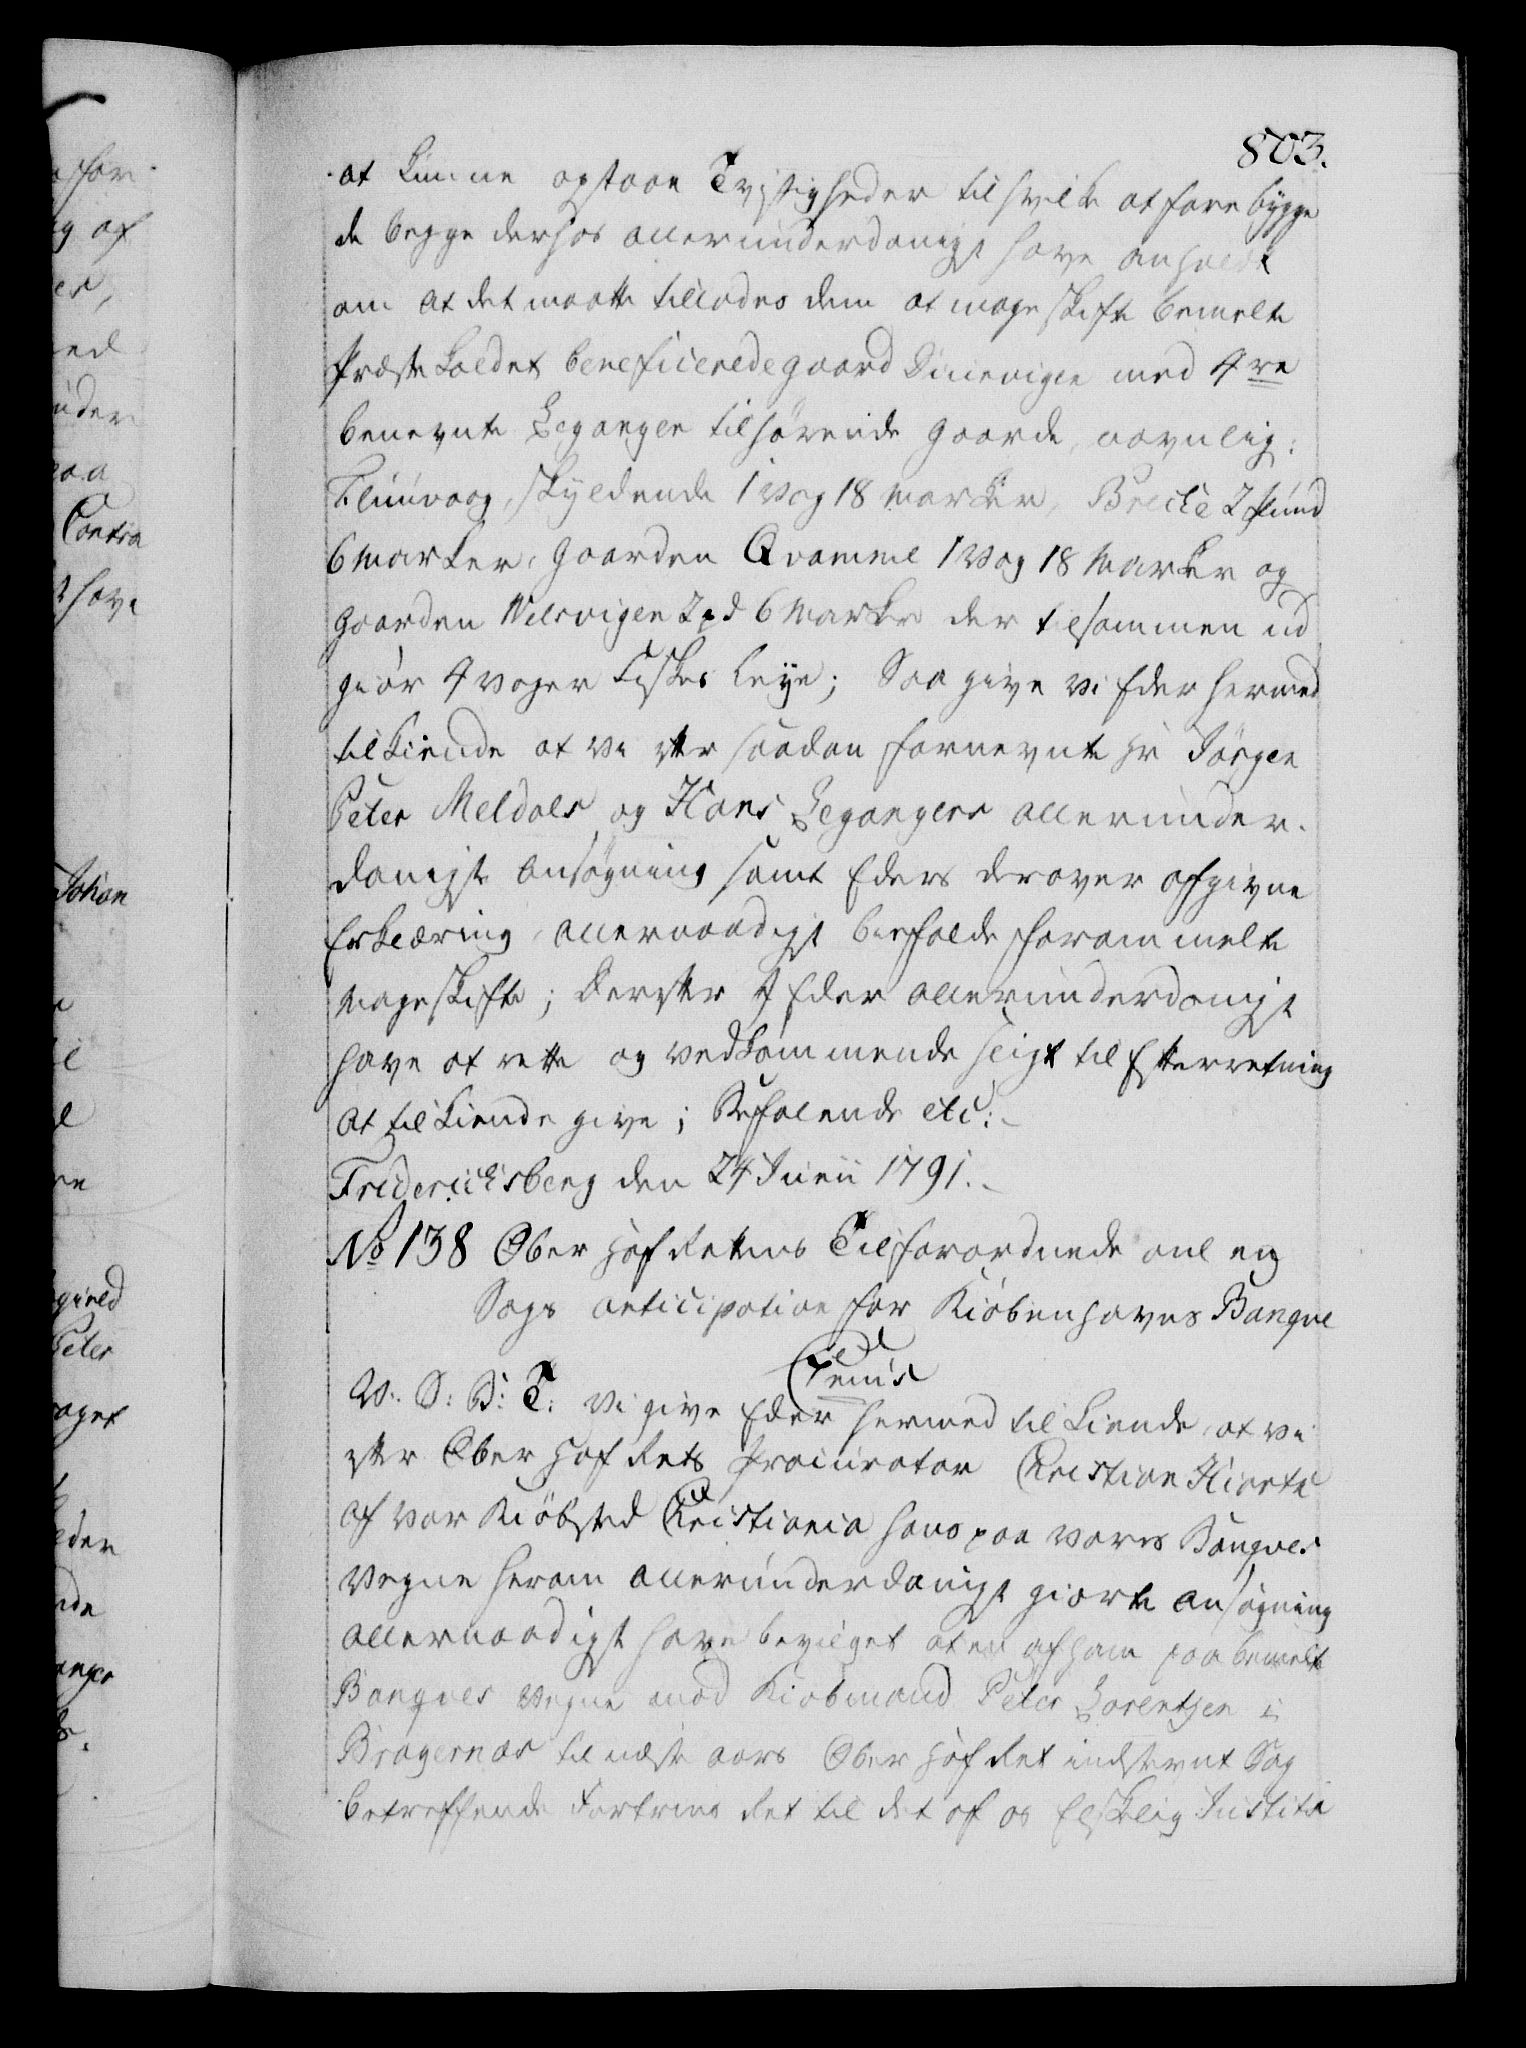 803.
at kunne opstaae Tvistigheder til hvilke at forebygge
de begge derhos allerunderdanigst have anholdt
om at det maatte tillades dem at mageskifte bemelte
Præste Kaldet beneficerede gaard Dinevigen med 4re
benevnte Legangen tilhørende gaarde, navnlig:
Fluevaag, skyldende 1 Vog 18 marker, Brecke 2 pund
6 marker, gaarden Qvamme 1 Vog 18 Marker og
gaarden Nelsvigen 2 pd 6 Marker der tilsammen ud
giør 4 Voger Fiskes Leye; Saa give vi Eder hermed
tilkiende at vi efter saadan fornevnte Hr Jørgen
Peter Meldals og Hans Legangers allerunder-
danigste Ansøgning samt Eders derover afgivne
Erklæring, allernaadigst bifalde forommelte
Mageskifte; Derefter I Eder allerunderdanigst
have at rette og vedkommende sligt til Efterretning
at tilkiende give; Befalende etc:
Fridericksberg den 24 Junii 1791.
No 138 Ober Hof Rettens Tilforordnede anl en
Sags anticipation for Kiøbenhavns Banqve
W. S. B: T: Vi give Eder hermed tilkiende, at vi
efter Ober Hof Rets Procurator Christian Hiorts
af vor Kiøbsted Christiania hans paa vores Banqves
Vegne herom allerunderdanigst giorte ansøgning
allernaadigst have bevilget at en af ham paa bemelte
Banqves Vegne mod Kiøbmand Peter Lorentzen i
Bragernæs til næste aars Ober Hof Ret indstevnt Sag
betreffende Fortrins Ret til det af os Elskelig Justits